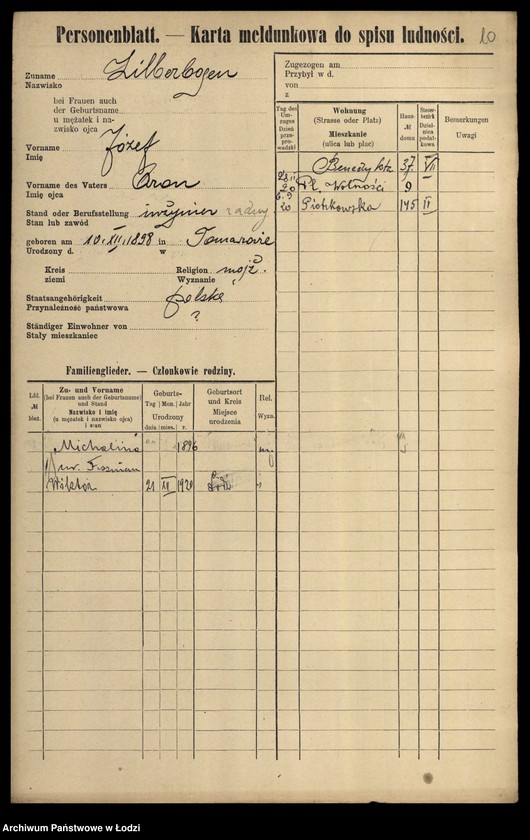 Personenblatt. — Karta meldunkowa do spisu ludności.
20
Zuname
Nazwisko
Zilberbogen
bei Frauen auch
der Geburtsname
u mężatek i na-
zwisko ojca
Vorname
Imię
Józef
Vorname des Vaters
Imię ojca
Aron
Stand oder Berufsstellung inżynier
Stan lub zawód
geboren am 10. XII. 1898 in
Urodzony d. w
Kreis Religion mojż.
ziemi Wyznanie
Staatsangehörigkeit polska
Przynależność państwowa ?
Ständiger Einwohner von
Stały mieszkaniec
Zugezogen am
Przybył w d.
von
z
Tag des Um-zuges Dzień prze-prowadzki
Wohnung
(Strasse oder Platz)
Mieszkanie
(ulica lub plac)
Haus-№ domu
Steuer-bezirk Dziel-nica podat-kowa
Bemerkungen
Uwagi
37 VII
20 Pl. Wolności 9
6.9
20 Piotrkowska 175 II
Familienglieder. — Członkowie rodziny.
Lfd. № bież.
Zu- und Vorname
(bei Frauen auch der Geburtsname)
und Stand
Nazwisko i imię
(u mężatek i nazwisko ojca)
i stan
Geburts-
Tag Mon. Jahr
Urodzony
dnia mies. r.
Geburtsort
und Kreis
Miejsce
urodzenia
Rel.
Wyzn.
Michalina 1896 mj
Wiktor 21 1920
Archiwum Państwowe w Łodzi